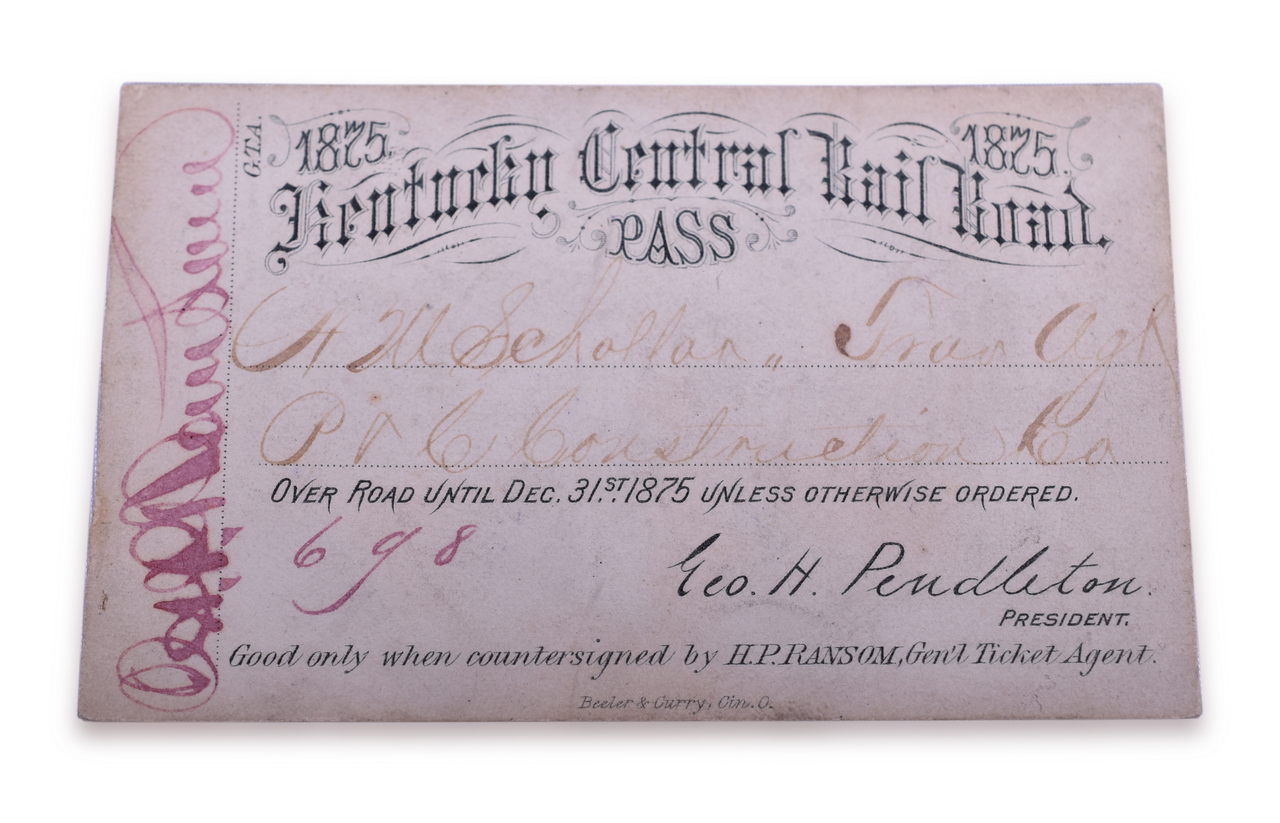 1875. 1875.
Kentucky Central Rail Road.
PASS
Trav Agt
P & C Construction Co
OVER ROAD UNTIL DEC. 31.ST 1875 UNLESS OTHERWISE ORDERED.
698
Geo. H. Pendleton.
PRESIDENT.
Good only when countersigned by H.P. RANSOM, Gen'l Ticket Agent.
Beeler & Curry, Cin. O.
G.T.A.
H P Ransom